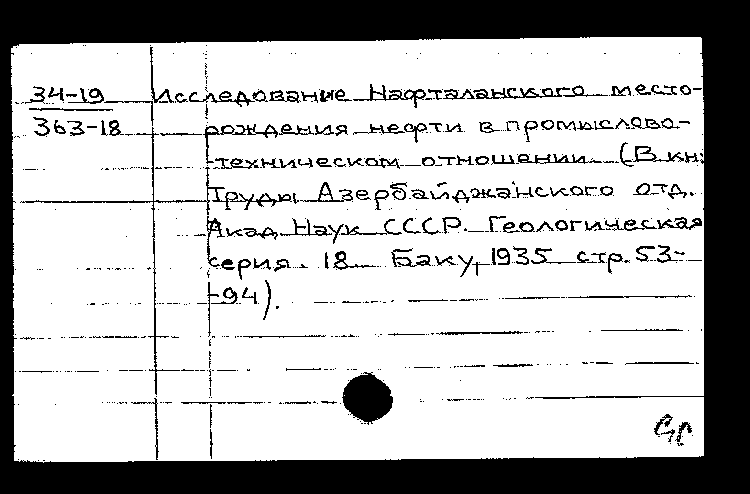 34-19 Исследование Нафталанского место-
363-18 рождения нефти в промыслово-
техническом отношении. (В кн:
Труды Азербайджанского отд.
Акад. Наук СССР. Геологическая
серия. 18. Баку, 1935 стр. 53-
-94).